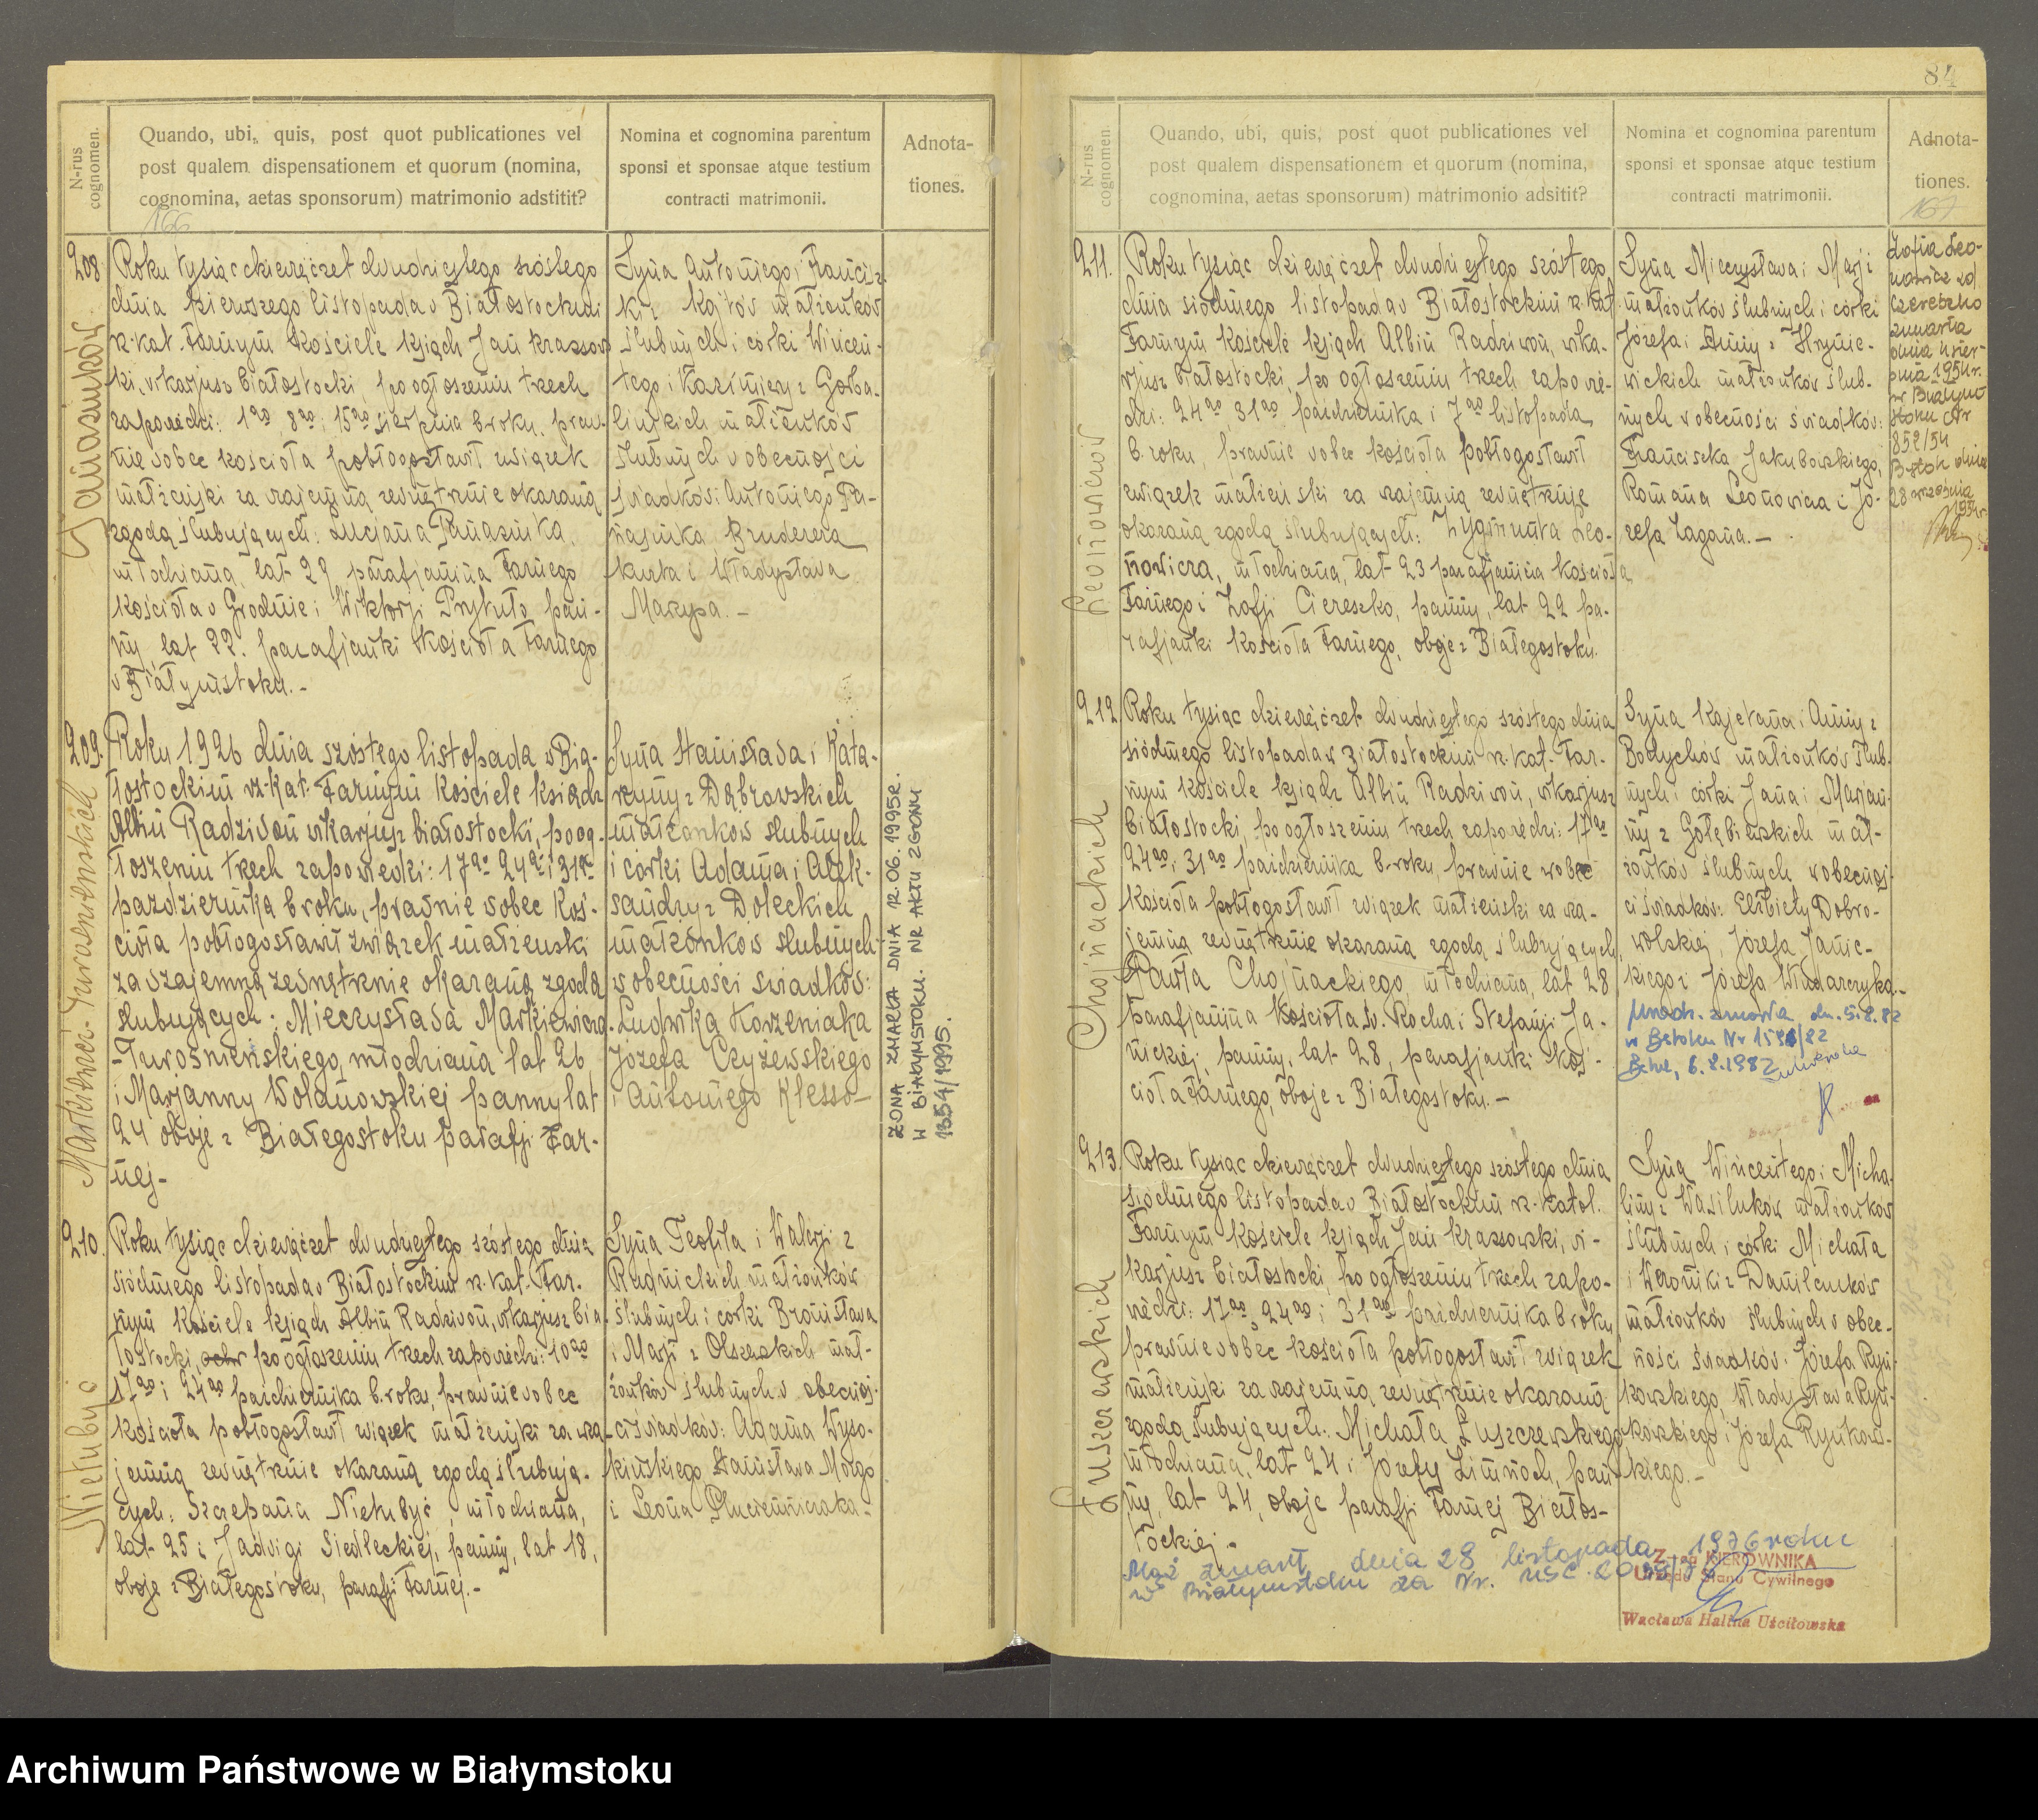 N-rus cognomen.
Quando, ubi, quis, post quot publicationes vel
post qualem dispensationem et quorum (nomina,
cognomina, aetas sponsorum) matrimonio adstitit?
Nomina et cognomina parentum
sponsi et sponsae atque testium
contracti matrimonii.
Adnota-
tiones.
166
208.
Roku tysiąc dziewięćset dwudziestego szóstego
dnia pierwszego listopada w Białostockim
rz.-kat. Farnym Kościele ksiądz Jan Krassow
ki, wikarjusz białostocki, po ogłoszeniu trzech
zapowiedzi: 1go 8go i 15go sierpnia b roku, praw-
nie wobec kościoła pobłogosławił związek
małżeński za wzajemną zewnętrznie okazaną
zgodą ślubujących: Lucjana Panasiuka,
młodziana, lat 29, parafjanina Farnego
kościoła w Grodnie i Wiktorji Przytuło, pan-
ny lat 22. parafjanki Kościoła Farnego
w Białymstoku.-
Syna Antoniego i Francisz
ki z Kojtów małżonków
ślubnych i córki Wincen-
tego i Kazimiery z Gorba-
lińskich małżonków
ślubnych w obecności
świadków: Antoniego Pa-
nasiuka Bruderera
Kurta i Władysława
Mazepa.-
209.
Roku 1926 dnia szóstego listopada w Bia-
łostockim rz-Kat. Farnym Kościele ksiądz
Albin Radziwon wikarjusz białostocki, po og-
łoszeniu trzech zapowiedzi: 17go 24go i 31go
pazdziernika b roku, prawnie wobec Koś-
cioła pobłogosławił związek małżenski
za wzajemną zewnętrznie okazaną zgodą
slubujących: Mieczysława Markiewicza-
-Turośnieńskiego, młodziana lat 26,
i Marjanny Wolanowskiej panny lat
24 oboje z Białegostoku parafji Far-
nej-
Syna Stanisława i Kata-
rzyny z Dąbrowskich
małżonków slubnych
i córki Adama i Alek-
sandry z Doleckich
małżonków slubnych
w obecności swiadków:
Ludwika Korzeniaka
Józefa Czyżewskiego
i Antoniego Kłesso-
ŻONA ZMARŁA DNIA 12.06.1995R.
W BIAŁYMSTOKU. NR AKTU ZGONU
1354/1995.
210.
Nietubyć
Roku tysiąc dziewięćset dwudziestego szóstego dnia
siódmego listopada w Białostockim rz.-kat. Far-
nym Kościele ksiądz Albin Radziwon, wikarjusz bia-
łostocki, po ogłoszeniu trzech zapowiedzi: 10go
17go i 24go października b. roku, prawnie wobec
kościoła pobłogosławił związek małżeński za wza-
jemną zewnętrznie okazaną zgodą ślubują-
cych: Szczepana Nietubyć, młodziana,
lat 25 i Jadwigi Siedleckiej, panny, lat 18,
oboje z Białegostoku, parafji Farnej.-
Syna Teofila i Walerji z
Rudnickich małżonków
ślubnych i córki Bronisława
i Marji z Olszewskich mał-
żonków ślubnych w obecnoś-
ci świadków: Adama Wyso-
kińskiego, Stanisława Morgo
i Leona
84
N-rus cognomen.
Quando, ubi, quis, post quot publicationes vel
post qualem dispensationem et quorum (nomina,
cognomina, aetas sponsorum) matrimonio adsitit?
Nomina et cognomina parentum
sponsi et sponsae atque testium
contracti matrimonii.
Adnota-
tiones.
167
211.
Leonowiczów
Roku tysiąc dziewięćset dwudziestego szóstego,
dnia siódmego listopada w Białostockim rz. kat
Farnym Kościele ksiądz Albin Radziwon, wika-
rjusz białostocki, po ogłoszeniu trzech zapowie-
dzi: 24go, 31go października i 7go listopada
b. roku, prawnie wobec kościoła pobłogosławił
związek małżeński za wzajemną zewnętrznie
okazaną zgodą ślubujących: Zygmunta Leo-
nowicza, młodziana, lat 23 parafjanina kościoła
Farnego i Zofji Ciereszko, panny, lat 22 pa-
rafjanki Kościoła Farnego, oboje z Białegostoku.
Syna Mieczysława i Marji
małżonków ślubnych i córki
Józefa i Anny z Hrynie-
wickich małżonków ślub-
nych w obecności świadków:
Franciszka Jakubowskiego,
Romana Leonowicza i Jó-
zefa Zagana.-
Zofia Leo-
nowicz zd
Ciereszko
zmarła
dnia sier-
pnia 1954r.
w Białym
stoku Nr
852/54
B-stok dnia
28 września
1954r.
212.
Chojnackich
Roku tysiąc dziewięćset dwudziestego szóstego dnia
siódmego listopada w Białostockim rz.-kat. Far-
nym kościele ksiądz Albin Radziwon, wikarjusz
białostocki, po ogłoszeniu trzech zapowiedzi: 17go
24go i 31go października b. roku, prawnie wobec
kościoła pobłogosławił związek małżeński za wza-
jemną zewnętrznie okazaną zgodą ślubujących,
Pawła Chojnackiego, młodziana, lat 28
parafjanina kościoła św. Rocha i Stefanji Ja-
nickiej, panny, lat 28, parafjanki koś-
cioła Farnego, oboje z Białegostoku.-
Syna Kajetana i Anny z
Bodychów małżonków ślub-
nych i córki Jana i Marjan-
ny z Gołębiewskich mał-
żonków ślubnych w obecnoś-
ci świadków: Elżbiety Dobro-
wolskiej, Józefa Janic-
kiego i Józefa Włudarczyka.-
zmarła dn. 5.8.82
w Bstoku Nr
6.8.1982
213.
Łuszczewskich
Roku tysiąc dziewięćset dwudziestego szóstego dnia
siódmego listopada w Białostockim rz.-katol.
Farnym Kościele ksiądz Jan Krassowski, wi-
karjusz białostocki, po ogłoszeniu trzech zapo-
wiedzi: 17go, 24go i 31go października b roku
prawnie wobec kościoła pobłogosławił związek
małżeński za wzajemną zewnętrznie okazaną
zgodą ślubujących: Michała Łuszczewskiego
młodziana, lat 24 i Józefy Zimnoch, pan-
ny, lat 24, oboje parafji Farnej Białos-
tockiej.-
Syna Wincentego i Micha
liny z Wasiluków małżonków
ślubnych i córki Michała
i Weroniki z Danilczuków
małżonków ślubnych w obec-
ności świadków: Józefa Ryn-
kowskiego, Władysława Ryn-
kowskiego i Józefa Rynkow-
kiego.-
Mąż zmarł dnia 28 listopada 1976 roku
w Białymstoku za Nr. USC
Z-ca KIEROWNIKA
Urzędu Stanu Cywilnego
Wacława Halina Uściłowska
Archiwum Państwowe w Białymstoku